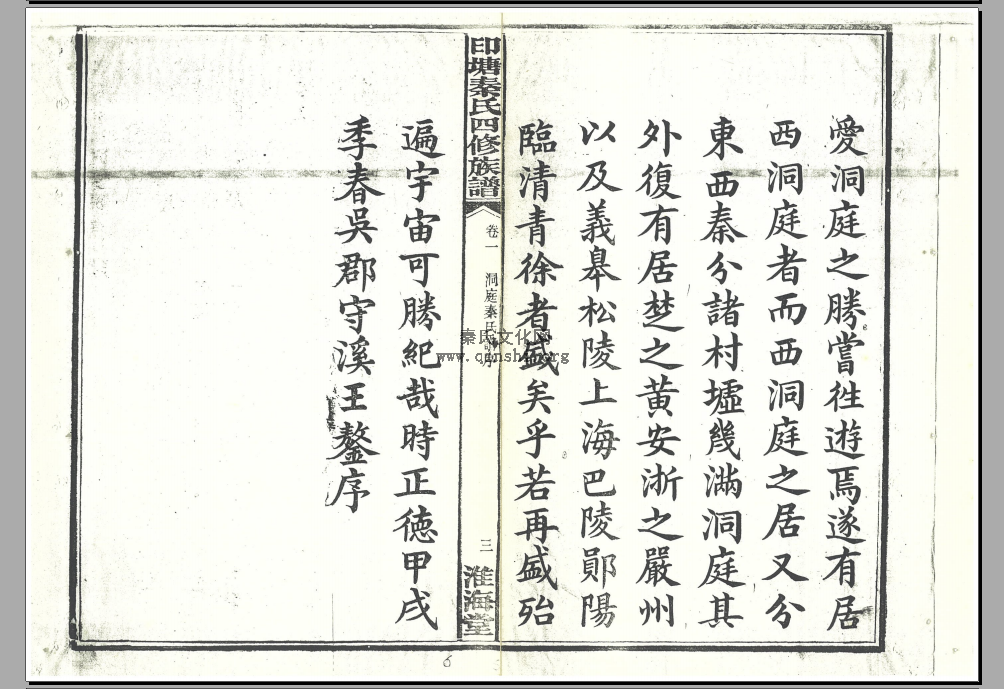 愛洞庭之勝嘗徃遊焉遂有居
西洞庭者而西洞庭之居又分
東西秦分諸村墟幾滿洞庭其
外復有居楚之黃安浙之嚴州
以及義皋松陵上海巴陵鄖陽
臨清青徐者盛矣乎若再盛殆
印塘秦氏四修族譜
卷一 洞庭秦氏譜序
三
淮海堂
遍宇宙可勝紀哉時正德甲戌
季春吳郡守溪王鏊序
秦氏文化网
www.qinshi.org
6